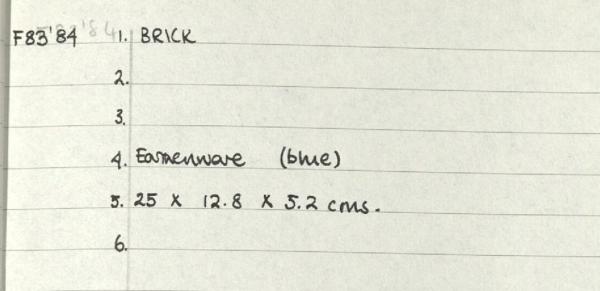 F83'84 1. BRICK
2.
3.
4. Earthenware (blue)
5. 25 X 12.8 X 5.2 cms.
6.